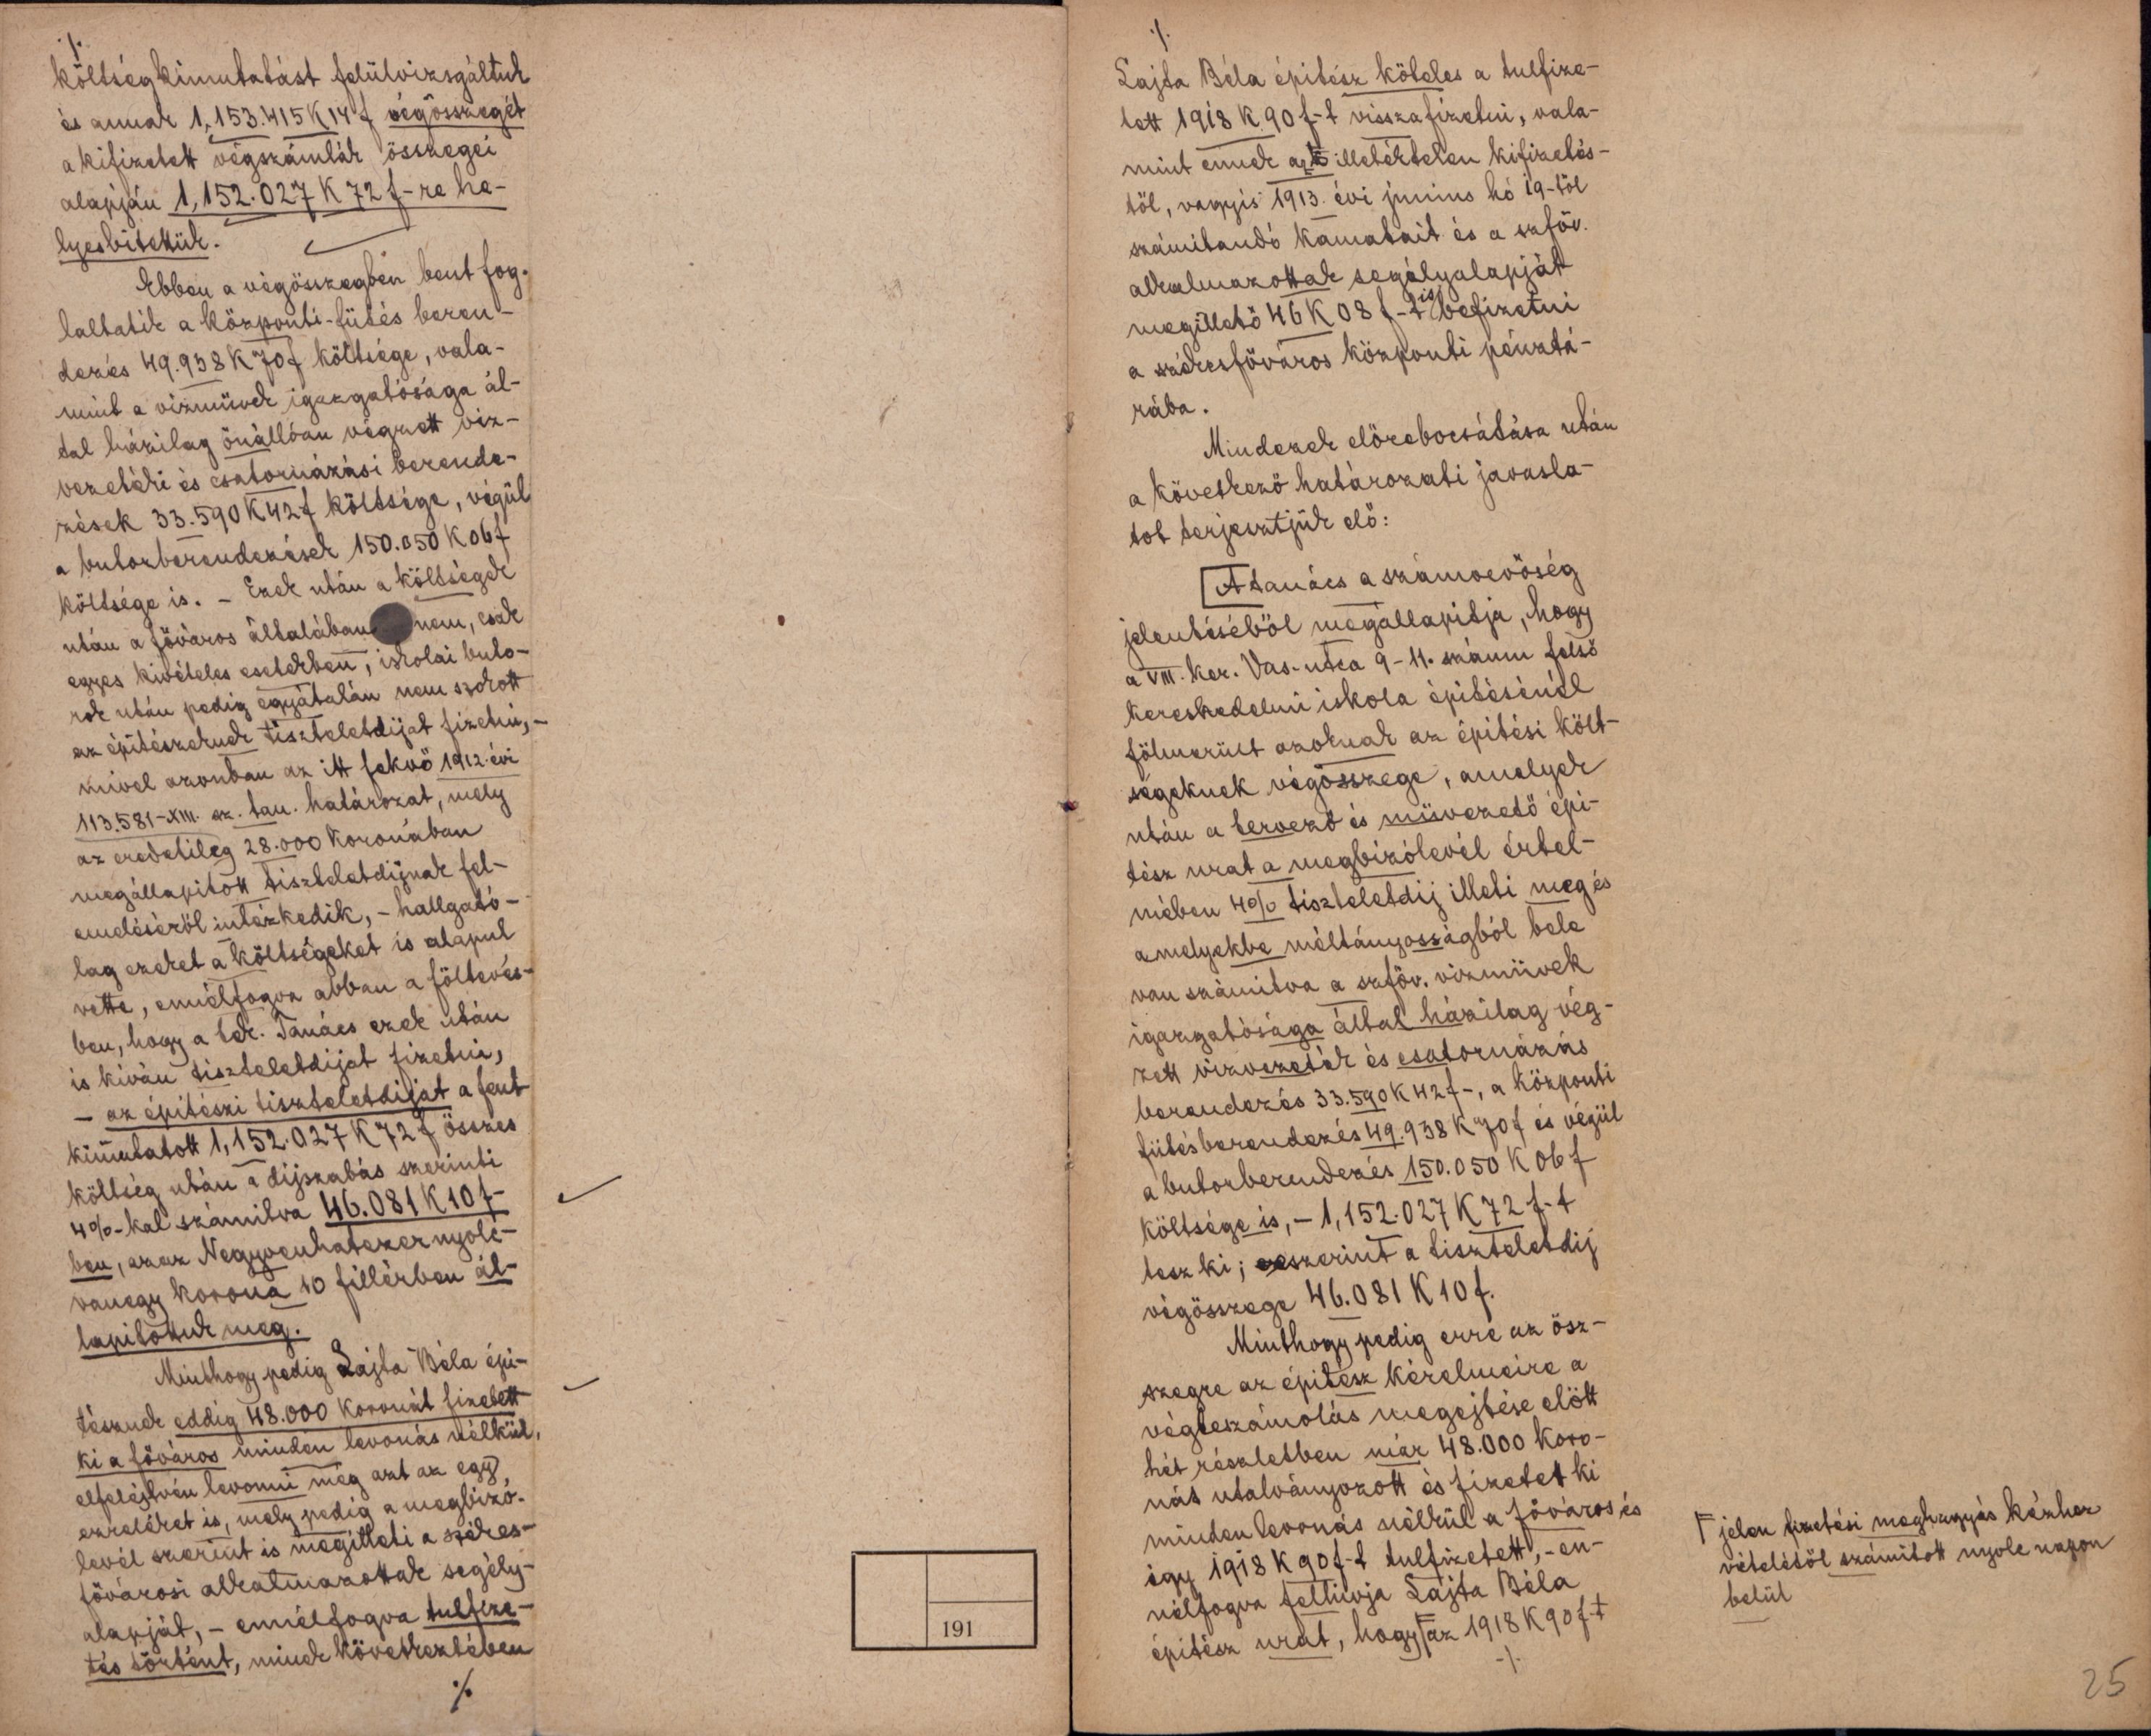 ·/·
költségkimutatást felülvizsgáltuk
és annak 1,153.415 K 14 f végösszegét
a kifizetett végszámlák összegei
alapján 1,152.027 K 72 f-re he-
lyesbitettük.
Ebben a végösszegben bent fog-
laltatik a központi-fütés beren-
dezés 49.938 K 70 f költsége, vala-
mint a vizmüvek igazgatósága ál-
tal házilag önállóan végzett viz-
vezetéki és csatornázási berende-
zések 33.590 K 42 f költsége, végül
a butorberendezések 150.050 K 06 f
költsége is. – Ezek után a költségek
után a főváros általában nem, csak
egyes kivételes esetekben, iskolai buto-
rok után pedig egyátalán nem szokott
az épitészeknek tiszteletdijat fizetni, –
mivel azonban az itt fekvő 1912. évi
113.581-XIII. sz. tan. határozat, mely
az eredetileg 28.000 koronában
megállapitott tiszteletdijnak fel-
emeléséről intézkedik, – hallgató-
lag ezeket a költségeket is alapul
vette, ennélfogva abban a föltevés-
ben, hogy a tek. Tanács ezek után
is kiván tiszteletdijat fizetni,
– az épitészi tiszteletdijat a fent
kimutatott 1,152.027 K 72 f összes
költség után a dijszabás szerinti
4%-kal számitva 46.081 K 10 f-
ben, azaz Negyvenhatezernyolc-
vanegy korona 10 fillérben ál-
lapitottuk meg.
Minthogy pedig Lajta Béla épi-
tésznek eddig 48.000 koronát fizetett
ki a főváros minden levonás nélkül,
elfelejtvén levonni még azt az egy
ezreléket is, mely pedig a megbizó-
levél szerint is megilleti a székes-
fővárosi alkalmazottak segély-
alapját, – ennélfogva tulfize-
tés történt, minek következtében
·/·
191
·/·
Lajta Béla épitész köteles a tulfize-
tett 1918 K 90 f-t visszafizetni, vala-
mint ennek az illetéktelen kifizetés-
től, vagyis 1913. évi junius hó 19-től
számitandó kamatait és a szföv.
alkalmazottak segélyalapját
megillető 46 K 08 f-t is befizetni
a székesfőváros központi pénztá-
rába.
Mindezek előrebocsátása után
a következő határozati javasla-
tot terjesztjük elő:
A tanács a számvevőség
jelentéséből megállapitja, hogy
a VIII. ker. Vas-utca 9-11. számu felső
kereskedelmi iskola épitésénél
fölmerült azoknak az épitési költ-
ségeknek végösszege, amelyek
után a tervező és müvezető épi-
tész urat a megbizólevél értel-
mében 4% tiszteletdij illeti meg és
amelyekbe méltányosságból bele
van számitva a szföv. vizmüvek
igazgatósága által házilag vég-
zett vizvezeték és csatornázás
berendezés 33.590 K 42 f-, a központi
fütésberendezés 49.938 K 70 f és végül
a butorberendezés 150.050 K 06 f
költsége is, – 1,152.027 K 72 f-t
tesz ki; eszerint a tiszteletdij
végösszege 46.081 K 10 f.
Minthogy pedig erre az ösz-
szegre az épitész kérelmeire a
végleszámolás megejtése előtt
hét részletben már 48.000 koro-
nát utalványozott és fizetett ki
minden levonás nélkül a főváros és
igy 1918 K 90 f-t tulfizetett, – en-
nélfogva felhivja Lajta Béla
épitész urat, hogy az 1918 K 90 f-t
·/·
jelen fizetési meghagyás kézhez
vételétől számitott nyolc napon
belül
25